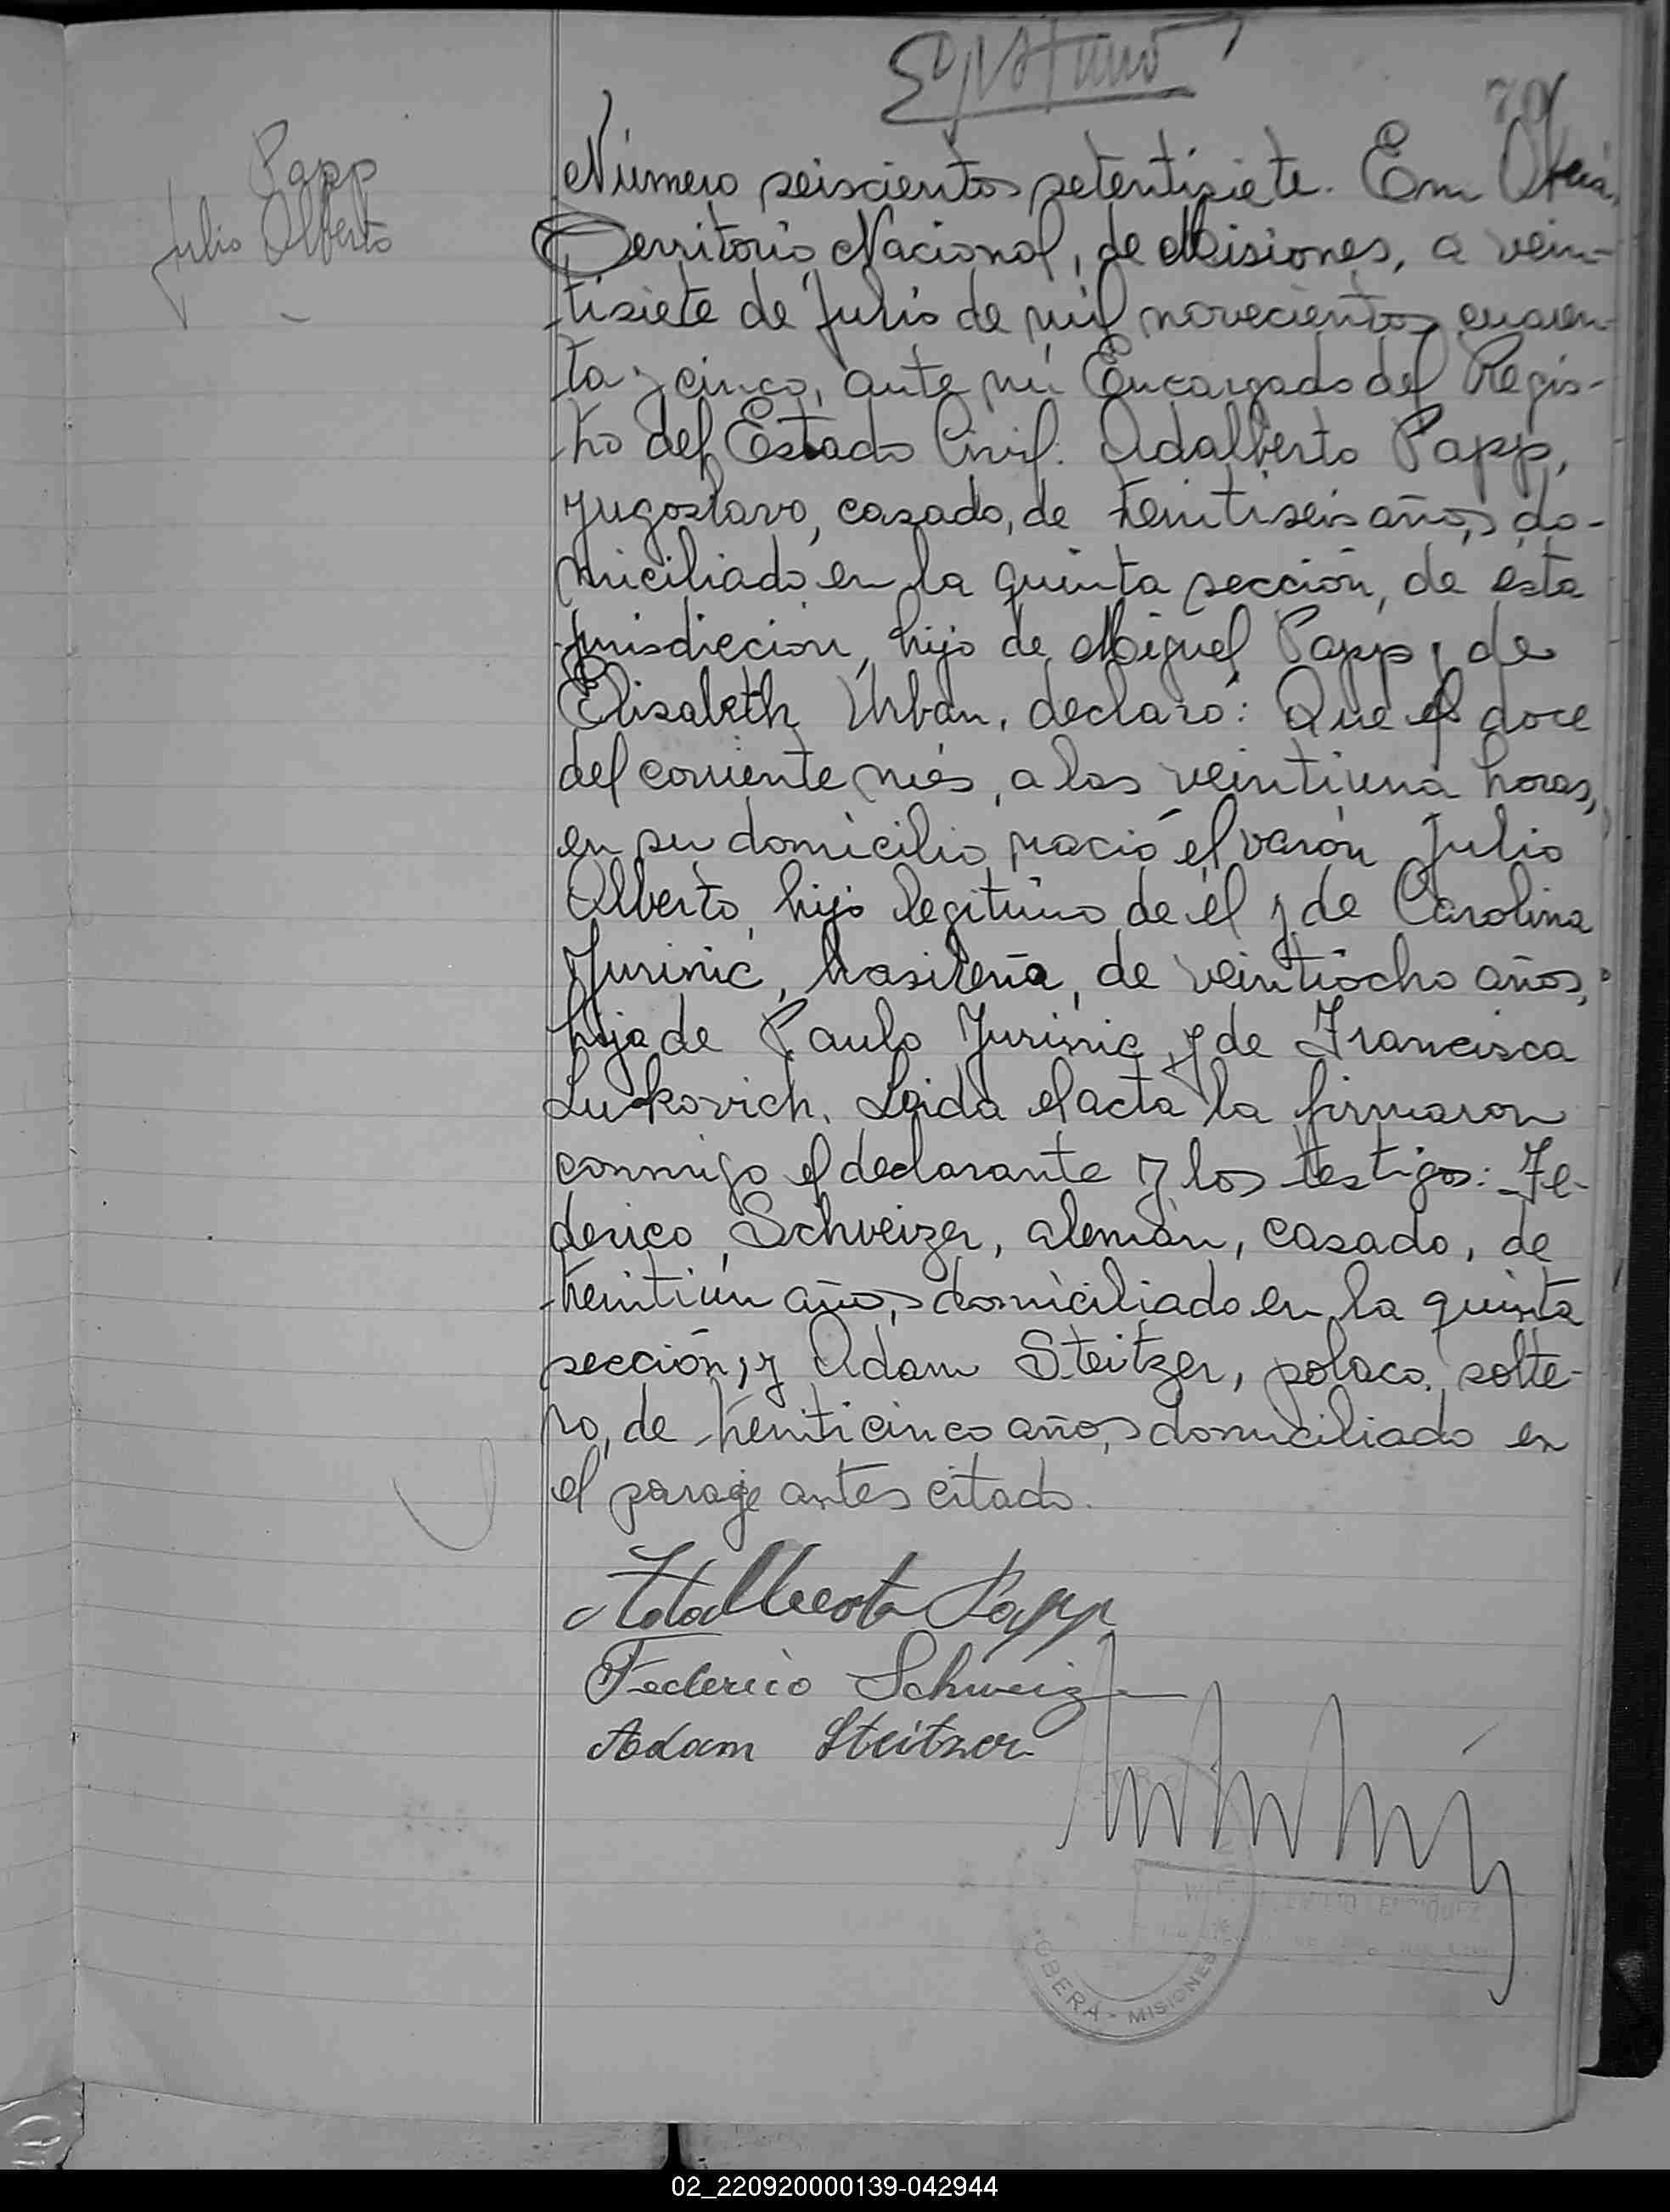 70
Papp
Julio Alberto
Número seiscientos setentisiete. En Oberá,
Territorio Nacional, de Misiones, a vein-
tisiete de Julio de mil novecientos cuaren-
ta y cinco, ante mí Encargado del Regis-
tro del Estado Civil: Adalberto Papp,
yugoslavo, casado, de treintiseis años, do-
miciliado en la quinta sección, de ésta
jurisdicción, hijo de Miguel Papp y de
Elisabeth Urban, declaró: Que el doce
del corriente mes, a las veintiuna horas,
en su domicilio nació el varón Julio
Alberto, hijo legítimo de él y de Carolina
Jurinic, brasileña, de veintiocho años,
hija de Paulo Jurinic y de Francisca
Luckovich. Leida el acta la firmaron
conmigo el declarante y los testigos: Fe-
derico Schweizer, alemán, casado, de
treintiún años, domiciliado en la quinta
sección, y Adam Steitzer, polaco, solte-
ro, de treinticinco años, domiciliado en
el paraje antes citado.
Adalberto Papp
Federico Schweizer
Adam Steitzer
OBERÁ - MISIONES
02_220920000139-042944